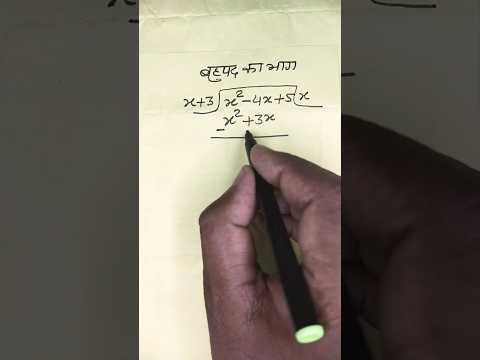 बहुपद का भाग
x+3 ) x² - 4x + 5 ( x
x² + 3x
-